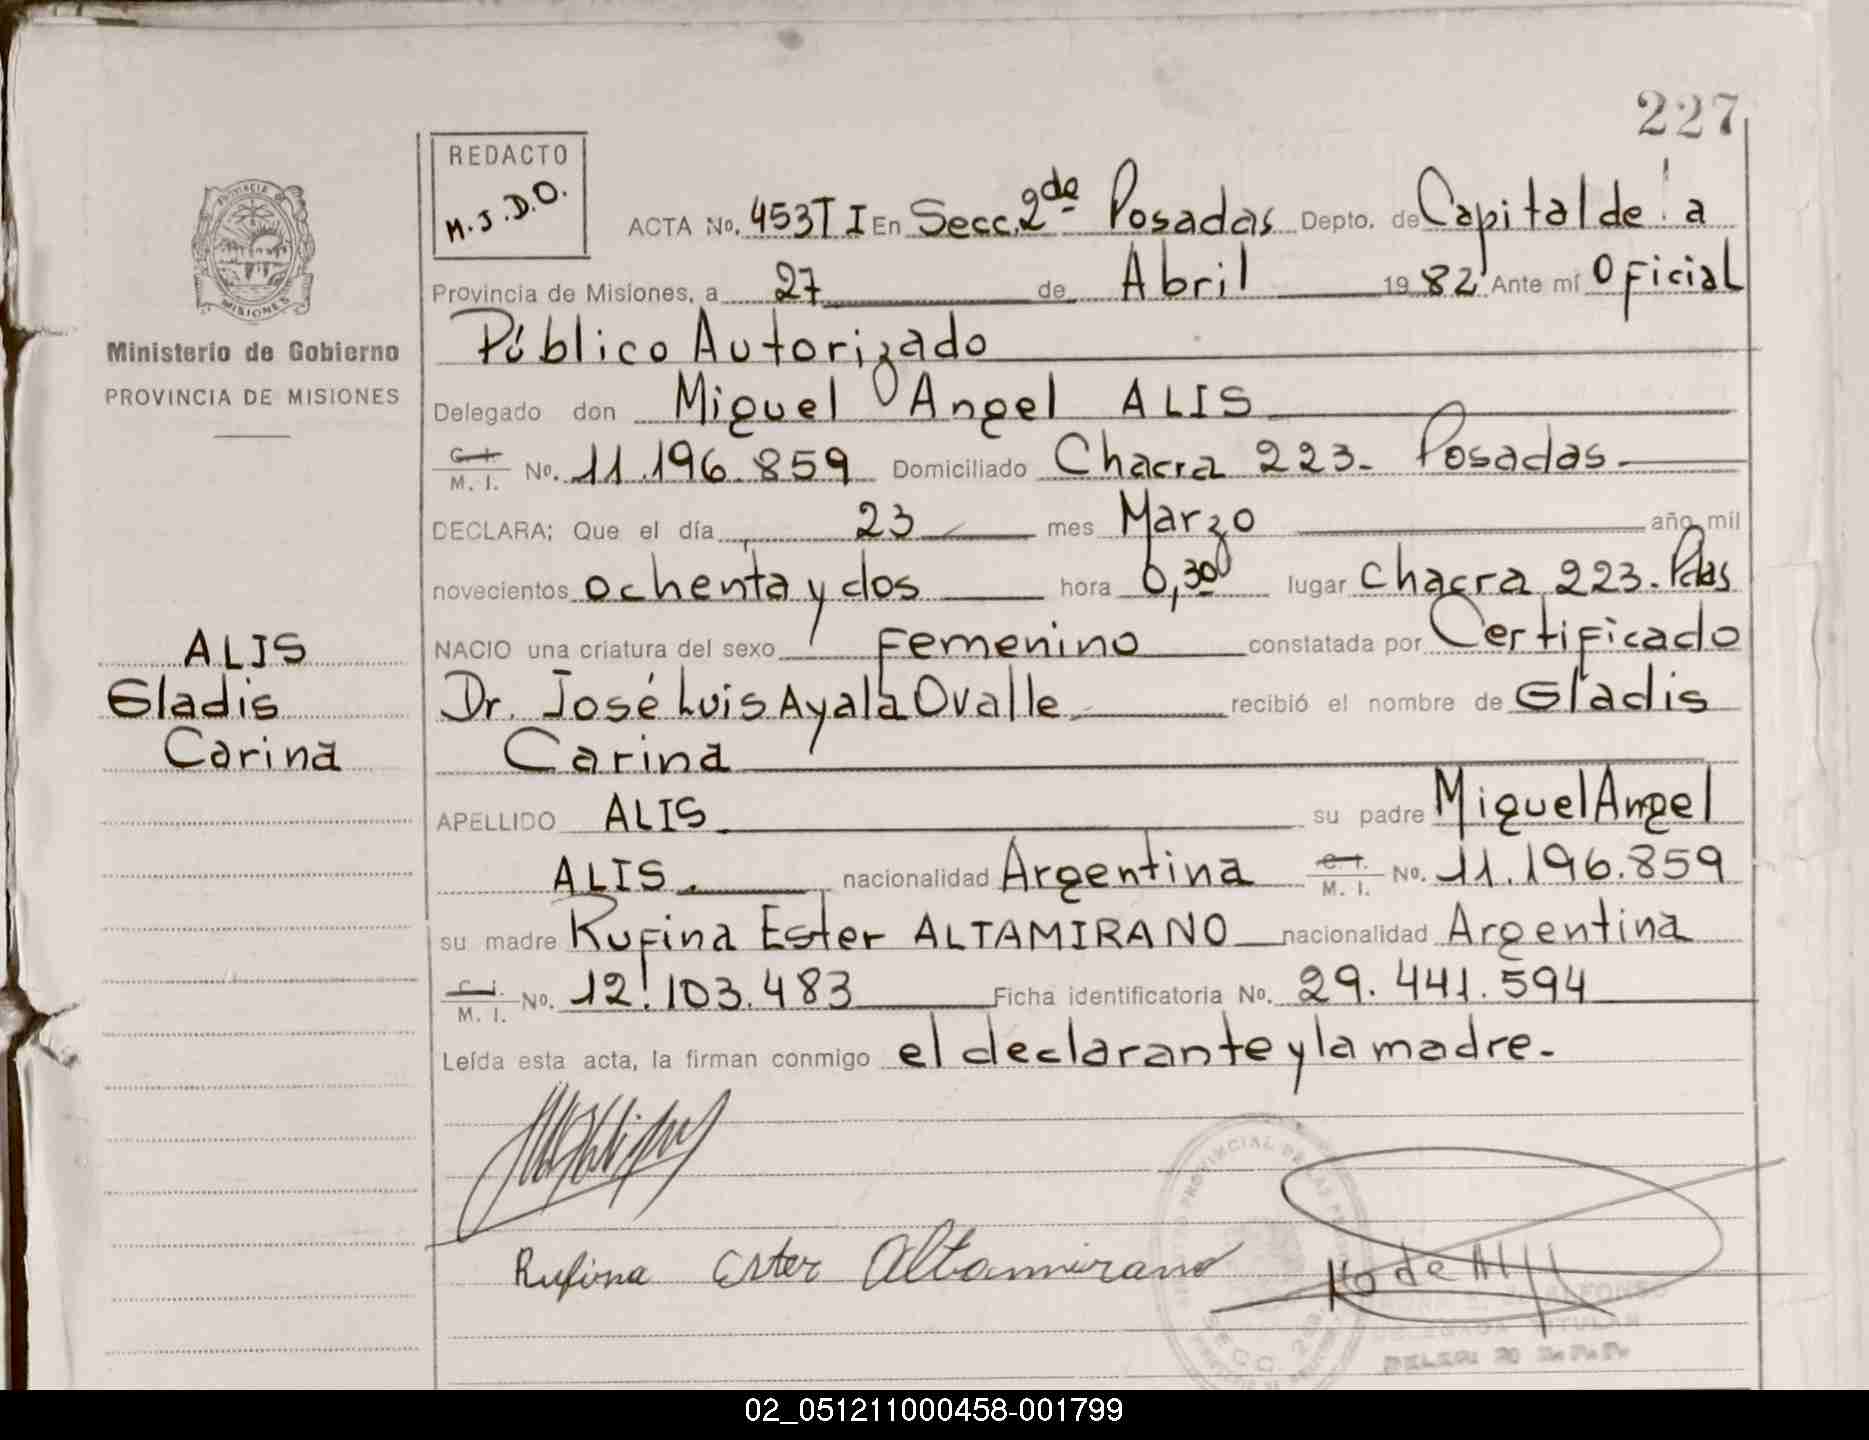 227
REDACTO
M.J.D.O.
ACTA No. 453 T I En Secc. 2da Posadas Depto. de Capital de la
Provincia de Misiones, a 27 de Abril 1982 Ante mí Oficial
Público Autorizado
Delegado don Miguel Angel ALIS
C. I. M. I. No. 11.196.859 Domiciliado Chacra 223- Posadas-
DECLARA: Que el día 23 mes Marzo año mil
novecientos ochenta y dos hora 0,30 lugar Chacra 223- Pdas
NACIO una criatura del sexo Femenino constatada por Certificado
Dr. José Luis Ayala Ovalle recibió el nombre de Gladis
Carina
APELLIDO ALIS su padre Miguel Angel
ALIS. nacionalidad Argentina C. I. M. I. No. 11.196.859
su madre Rufina Ester ALTAMIRANO nacionalidad Argentina
C. I. M. I. No. 12.103.483 Ficha identificatoria No. 29.441.594
Leída esta acta, la firman conmigo el declarante y la madre.-
Rufina Ester Altamirano
PROVINCIA
MISIONES
Ministerio de Gobierno
PROVINCIA DE MISIONES
ALIS
Gladis
Carina
02_051211000458-001799